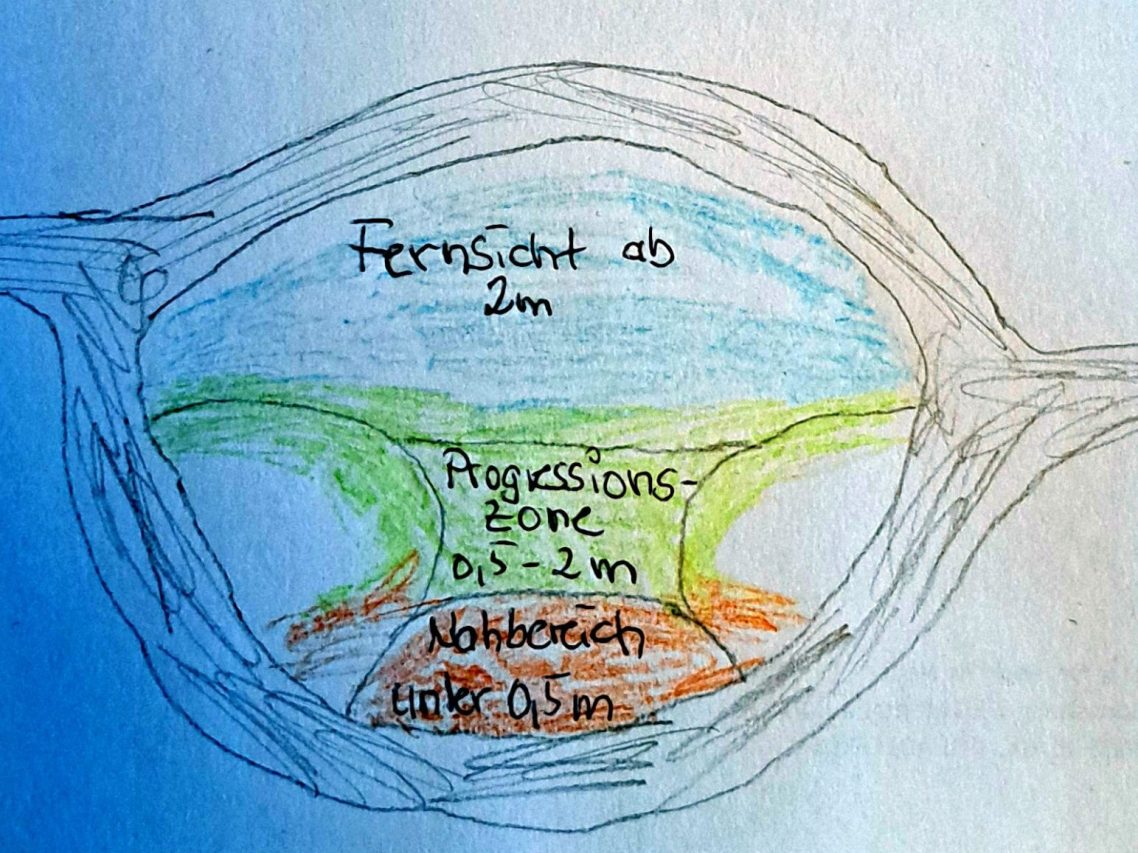 Fernsicht ab
2m
Progressions-
zone
0,5-2m
Nahbereich
unter 0,5m